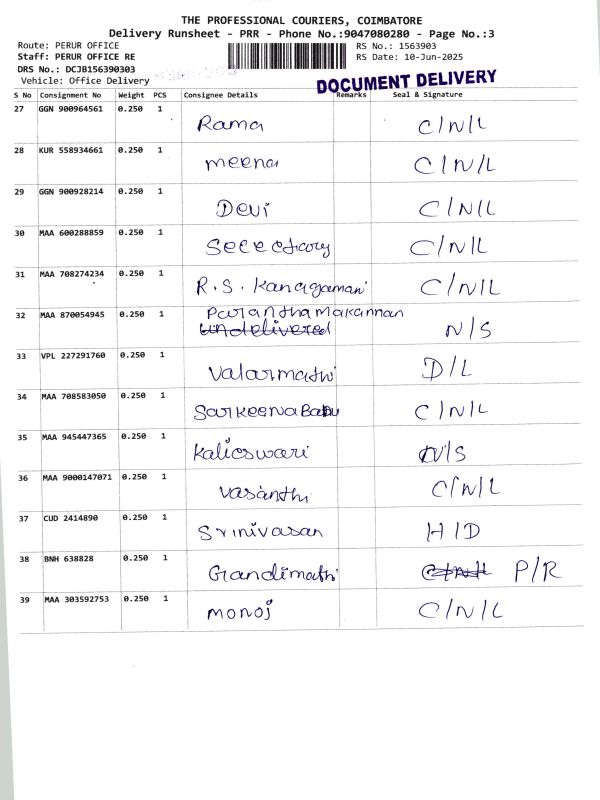 THE PROFESSIONAL COURIERS, COIMBATORE
Delivery Runsheet - PRR - Phone No.:9047080280 - Page No.:3
Route: PERUR OFFICE RS No.: 1563903
Staff: PERUR OFFICE RE RS Date: 10-Jun-2025
DRS No.: DCJB156390303
Vehicle: Office Delivery
DOCUMENT DELIVERY
S No Consignment No Weight PCS Consignee Details Remarks Seal & Signature
27 GGN 900964561 0.250 1 Rama C/N/L
28 KUR 558934661 0.250 1 meena C/N/L
29 GGN 900928214 0.250 1 Devi C/N/L
30 MAA 600288859 0.250 1 Secectiary C/N/L
31 MAA 708274234 0.250 1 R.S. Kanagamani C/N/L
32 MAA 870054945 0.250 1 Paranthamakannan
undelivered N/S
33 VPL 227291760 0.250 1 Valarmathi D/L
34 MAA 708583050 0.250 1 Sarkeena Babu C/N/L
35 MAA 945447365 0.250 1 Kalieswari N/S
36 MAA 9000147071 0.250 1 Vasanthi C/N/L
37 CUD 2414890 0.250 1 Srinivasan H/D
38 BNH 638828 0.250 1 Grandimathi C/N/L P/R
39 MAA 303592753 0.250 1 monoj C/N/L